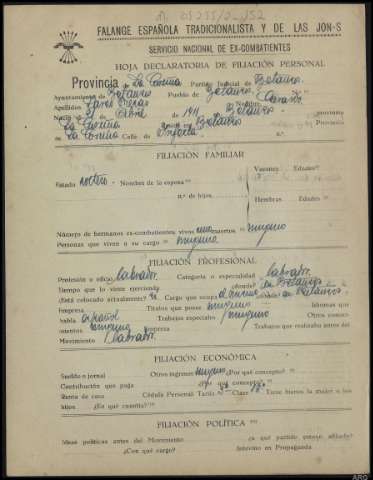 FALANGE ESPAÑOLA TRADICIONALISTA Y DE LAS JON-S
SERVICIO NACIONAL DE EX-COMBATIENTES
HOJA DECLARATORIA DE FILIACIÓN PERSONAL
Provincia de La Coruña Partido Judicial de Betanzos.
Ayuntamiento de Betanzos Pueblo de Betanzos.
Apellidos Nombre
Nació el Abril de 1911 Betanzos
La Coruña Betanzos Provincia
La Coruña Calle de n.º
FILIACIÓN FAMILIAR
Varones Edades
Estado soltero - Nombre de la esposa
n.º de hijos
Hembras Edades
Número de hermanos ex-combatientes, vivos uno muertos ninguno
Personas que viven a su cargo ninguno
FILIACIÓN PROFESIONAL
Profesión u oficio labrador. Categoría o especialidad labrador.
Tiempo que lo viene ejerciendo ¿dónde? en Betanzos
¿Está colocado actualmente? Cargo que ocupa en Betanzos.
Empresa Títulos que posee ninguno Idiomas que
habla español Trabajos especiales ninguno Otros conoci-
mientos ninguno Empresa Trabajos que realizaba antes del
Movimiento labrador.
FILIACIÓN ECONÓMICA
Sueldo o jornal Otros ingresos ninguno ¿Por qué concepto?
Contribución que paga ¿Por qué concepto?
Renta de casa Cédula Personal Tarifa Clase Tiene bienes la mujer o los
hijos ¿En qué cuantía?
FILIACIÓN POLÍTICA
Ideas políticas antes del Movimiento en qué partido estuvo afiliado?
¿Con qué cargo? Intervino en Propaganda